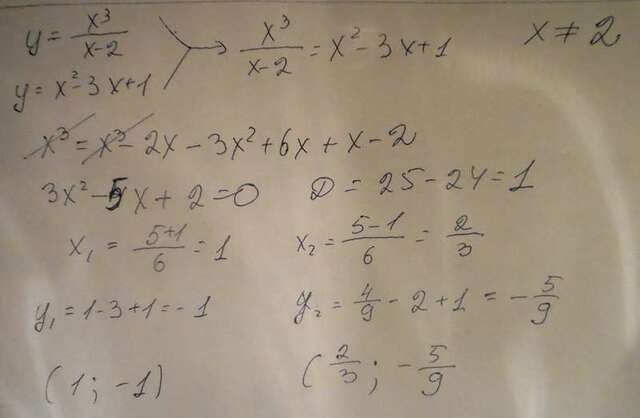 y = x³/(x-2) → x³/(x-2) = x² - 3x + 1 x ≠ 2
y = x² - 3x + 1
x³ = x³ - 2x - 3x² + 6x + x - 2
3x² - 5x + 2 = 0 D = 25 - 24 = 1
x₁ = (5+1)/6 = 1 x₂ = (5-1)/6 = 2/3
y₁ = 1 - 3 + 1 = -1 y₂ = 4/9 - 2 + 1 = -5/9
(1; -1) (2/3; -5/9)